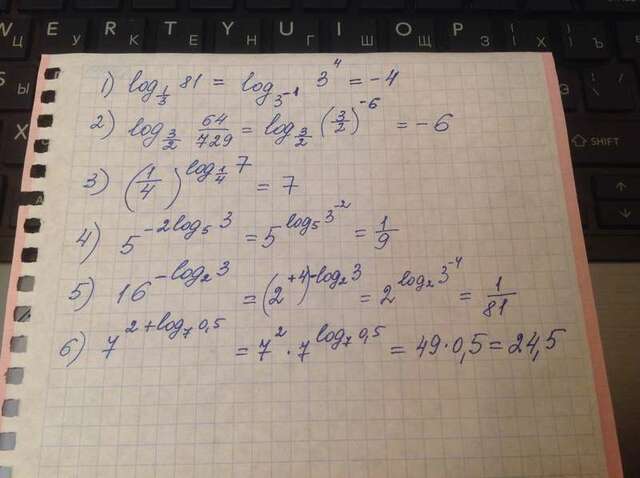 W E R T Y U I O P
Ц У К Е Н Г Ш Щ З Х Ъ
SHIFT
1) log_{1/3} 81 = log_{3^{-1}} 3^4 = -4
2) log_{3/2} 64/729 = log_{3/2} (3/2)^{-6} = -6
3) (1/4)^{log_{1/4} 7} = 7
4) 5^{-2log_5 3} = 5^{log_5 3^{-2}} = 1/9
5) 16^{-log_2 3} = (2^{+4})^{-log_2 3} = 2^{log_2 3^{-4}} = 1/81
6) 7^{2+log_7 0,5} = 7^2 · 7^{log_7 0,5} = 49·0,5 = 24,5